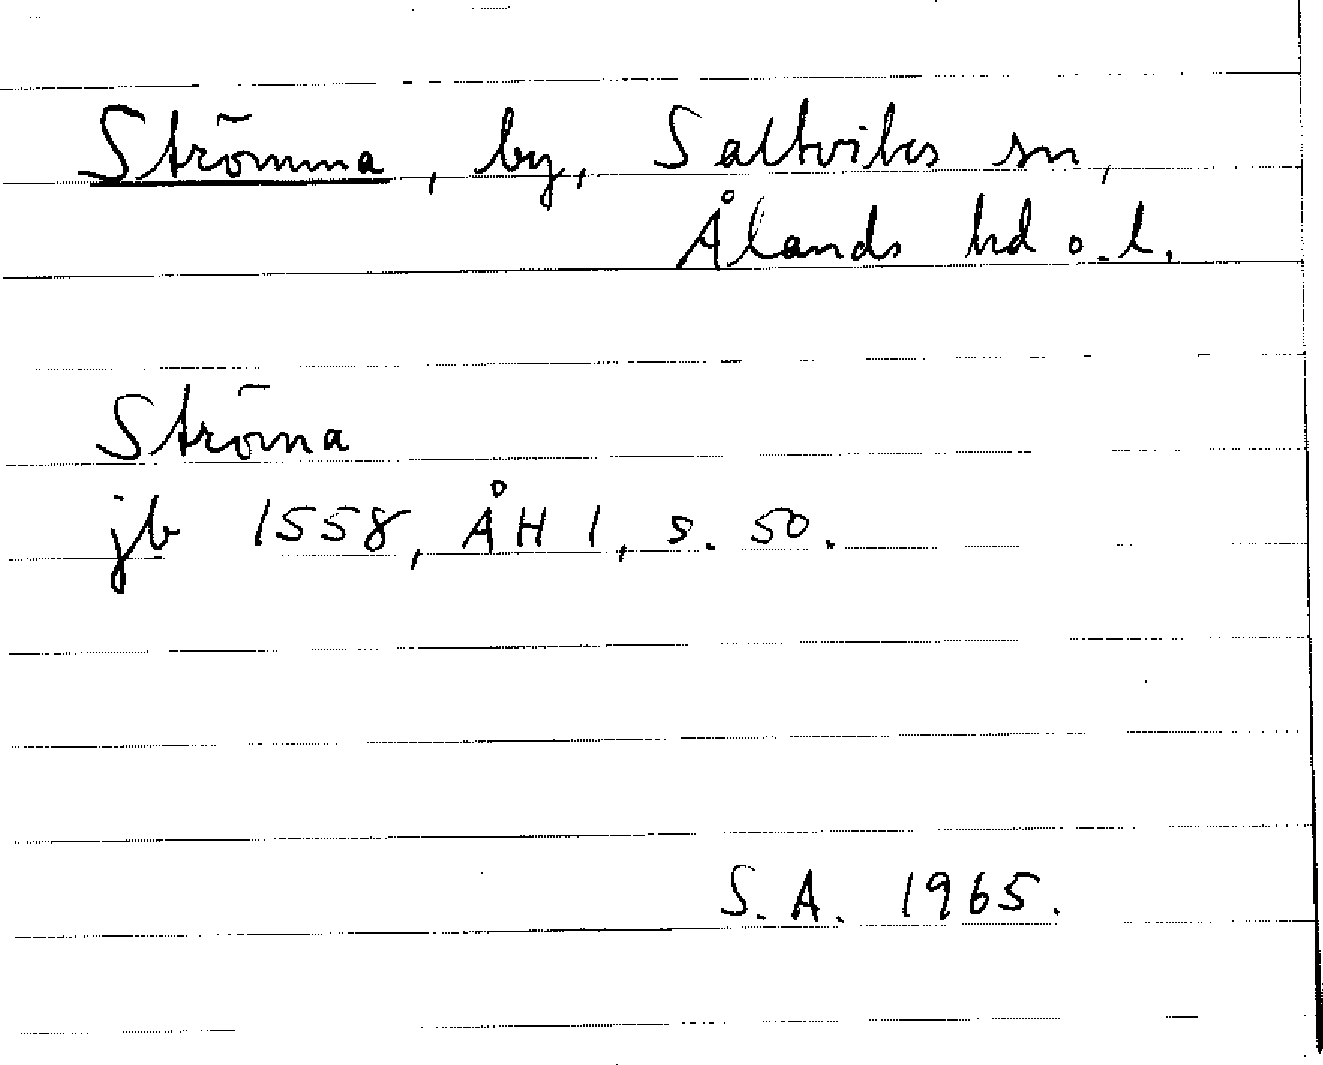 Strömma, by, Saltviks sn,
Ålands hd o. l.
Ströma
jb 1558, ÅH 1, s. 50.
S. A. 1965.